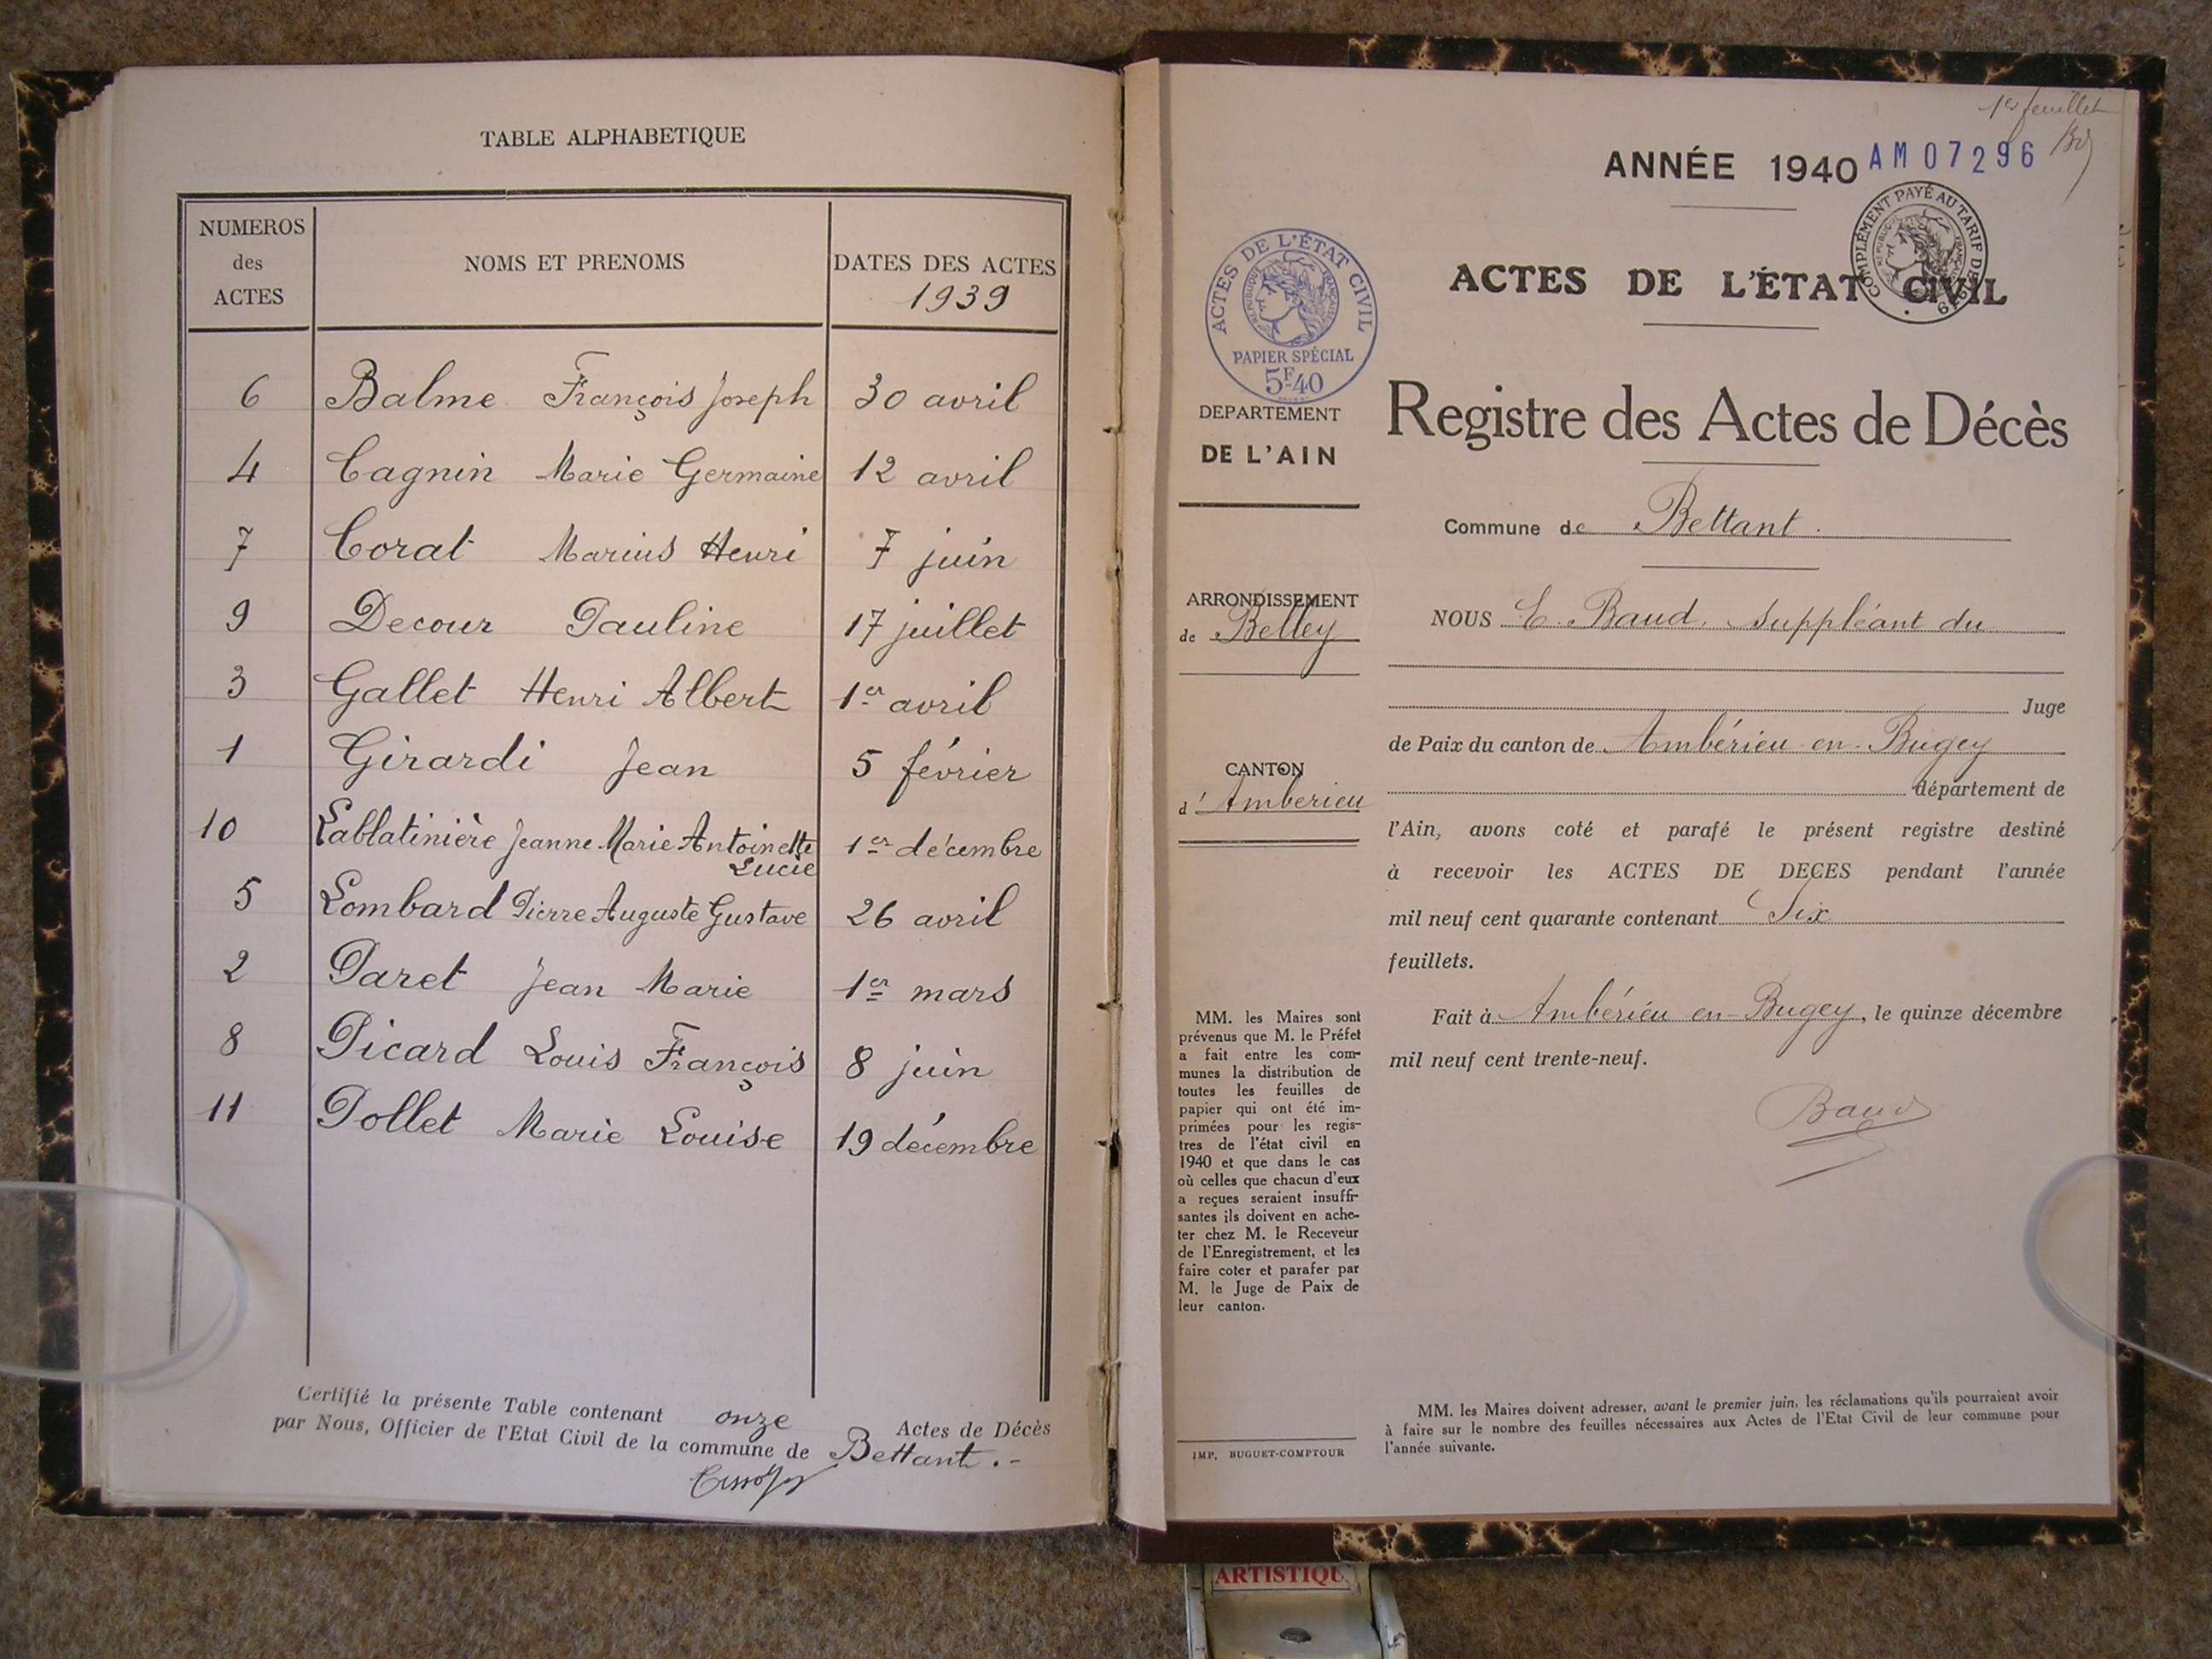 TABLE ALPHABETIQUE
NUMEROS
des
ACTES
NOMS ET PRENOMS
DATES DES ACTES
1939
6 Balme François Joseph 30 avril
4 Cagnin Marie Germaine 12 avril
7 Corat Marius Henri 7 juin
9 Decour Pauline 17 juillet
3 Gallet Henri Albert 1er avril
1 Girardi Jean 5 février
10 Lablatinière Jeanne Marie Antoinette 1er décembre
Lucie
5 Lombard Pierre Auguste Gustave 26 avril
2 Paret Jean Marie 1er mars
8 Picard Louis François 8 juin
11 Pollet Marie Louise 19 décembre
Certifié la présente Table contenant onze Actes de Décès
par Nous, Officier de l'Etat Civil de la commune de Bettant.-
1er feuillet
ANNÉE 1940 AM07296
COMPLÉMENT PAYÉ AU TARIF DE 19
ACTES DE L'ÉTAT CIVIL
ACTES DE L'ÉTAT CIVIL
RÉPUBLIQUE FRANÇAISE
PAPIER SPÉCIAL
5F40
DEPARTEMENT
DE L'AIN
ARRONDISSEMENT
de Belley
CANTON
d'Ambérieu
MM. les Maires sont
prévenus que M. le Préfet
a fait entre les com-
munes la distribution de
toutes les feuilles de
papier qui ont été im-
primées pour les regis-
tres de l'état civil en
1940 et que dans le cas
où celles que chacun d'eux
a reçues seraient insuffi-
santes ils doivent en ache-
ter chez M. le Receveur
de l'Enregistrement, et les
faire coter et parafer par
M. le Juge de Paix de
leur canton.
IMP. BUGUET-COMPTOUR
Registre des Actes de Décès
Commune de Bettant.
NOUS E. Baud, suppléant du
Juge
de Paix du canton de Ambérieu-en-Bugey
département de
l'Ain, avons coté et parafé le présent registre destiné
à recevoir les ACTES DE DECES pendant l'année
mil neuf cent quarante contenant Six
feuillets.
Fait à Ambérieu en-Bugey, le quinze décembre
mil neuf cent trente-neuf.
Baud
MM. les Maires doivent adresser, avant le premier juin, les réclamations qu'ils pourraient avoir
à faire sur le nombre des feuilles nécessaires aux Actes de l'Etat Civil de leur commune pour
l'année suivante.
ARTISTIQU